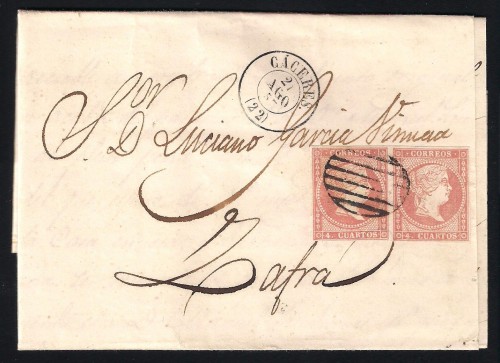 CÁCERES
2
AGO
(22)
Sor
D. Luciano Garcia
CORREOS CORREOS
4 CUARTOS 4 CUARTOS
Zafra